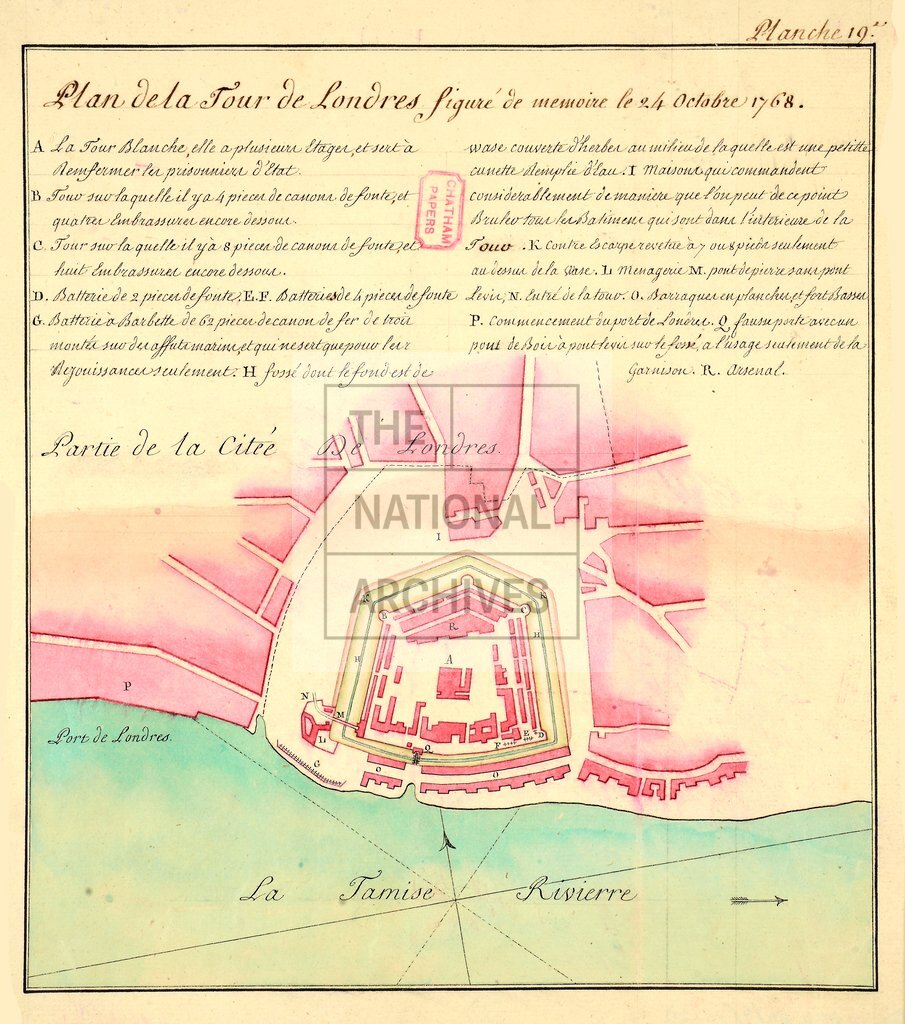 Planche 19.e
Plan de la Tour de Londres figuré de memoire le 24 Octobre 1768.
A La Tour Blanche, elle a plusieurs Etages, et sert à
Renfermer les prisonniers d'Etat.
B Tour sur laquelle il y a 4 pieces de canons de fonte, et
quatres Embrassures encore dessous.
C. Tour sur la quelle il y a 8 pieces de canons de fonte, et
huit Embrassures encore dessous.
D. Batterie de 2 pieces de fonte, E.F. Batteries de 4 pieces de fonte
G. Batterie à Barbette de 62 pieces de canon de fer de trois
montés sur des affuts marins, et qui ne sert que pour les
Rejouissances seulement. H fossé dont le fond est de
wase couverte d'herbes au milieu de laquelle est une petitte
cunette Remplie d'Eau. I Maisons qui commandent
considérablement de maniere que l'on peut de ce point
Bruler tous les Batimens qui sont dans l'interieure de la
Tour. K Contre Escarpe revetue à 7 ou 8 pieds seulement
au dessus de la Vase. L Menagerie M. pont de pierre sans pont
Levis, N. Entré de la tour. O. Barraques en planches et fort Basses
P. Commencement du port de Londres. Q fausse porte avec un
pont de Bois à pont levis sur le fossé, a l'usage seulement de la
Garnison. R. Arsenal.
CHATHAM
PAPERS
Partie de la Citéé De Londres.
THE
NATIONAL
ARCHIVES
I
K K
B C
R
H H
A
P
N
M
L
Q
F E D
G
O O
Port de Londres.
La Tamise Rivierre